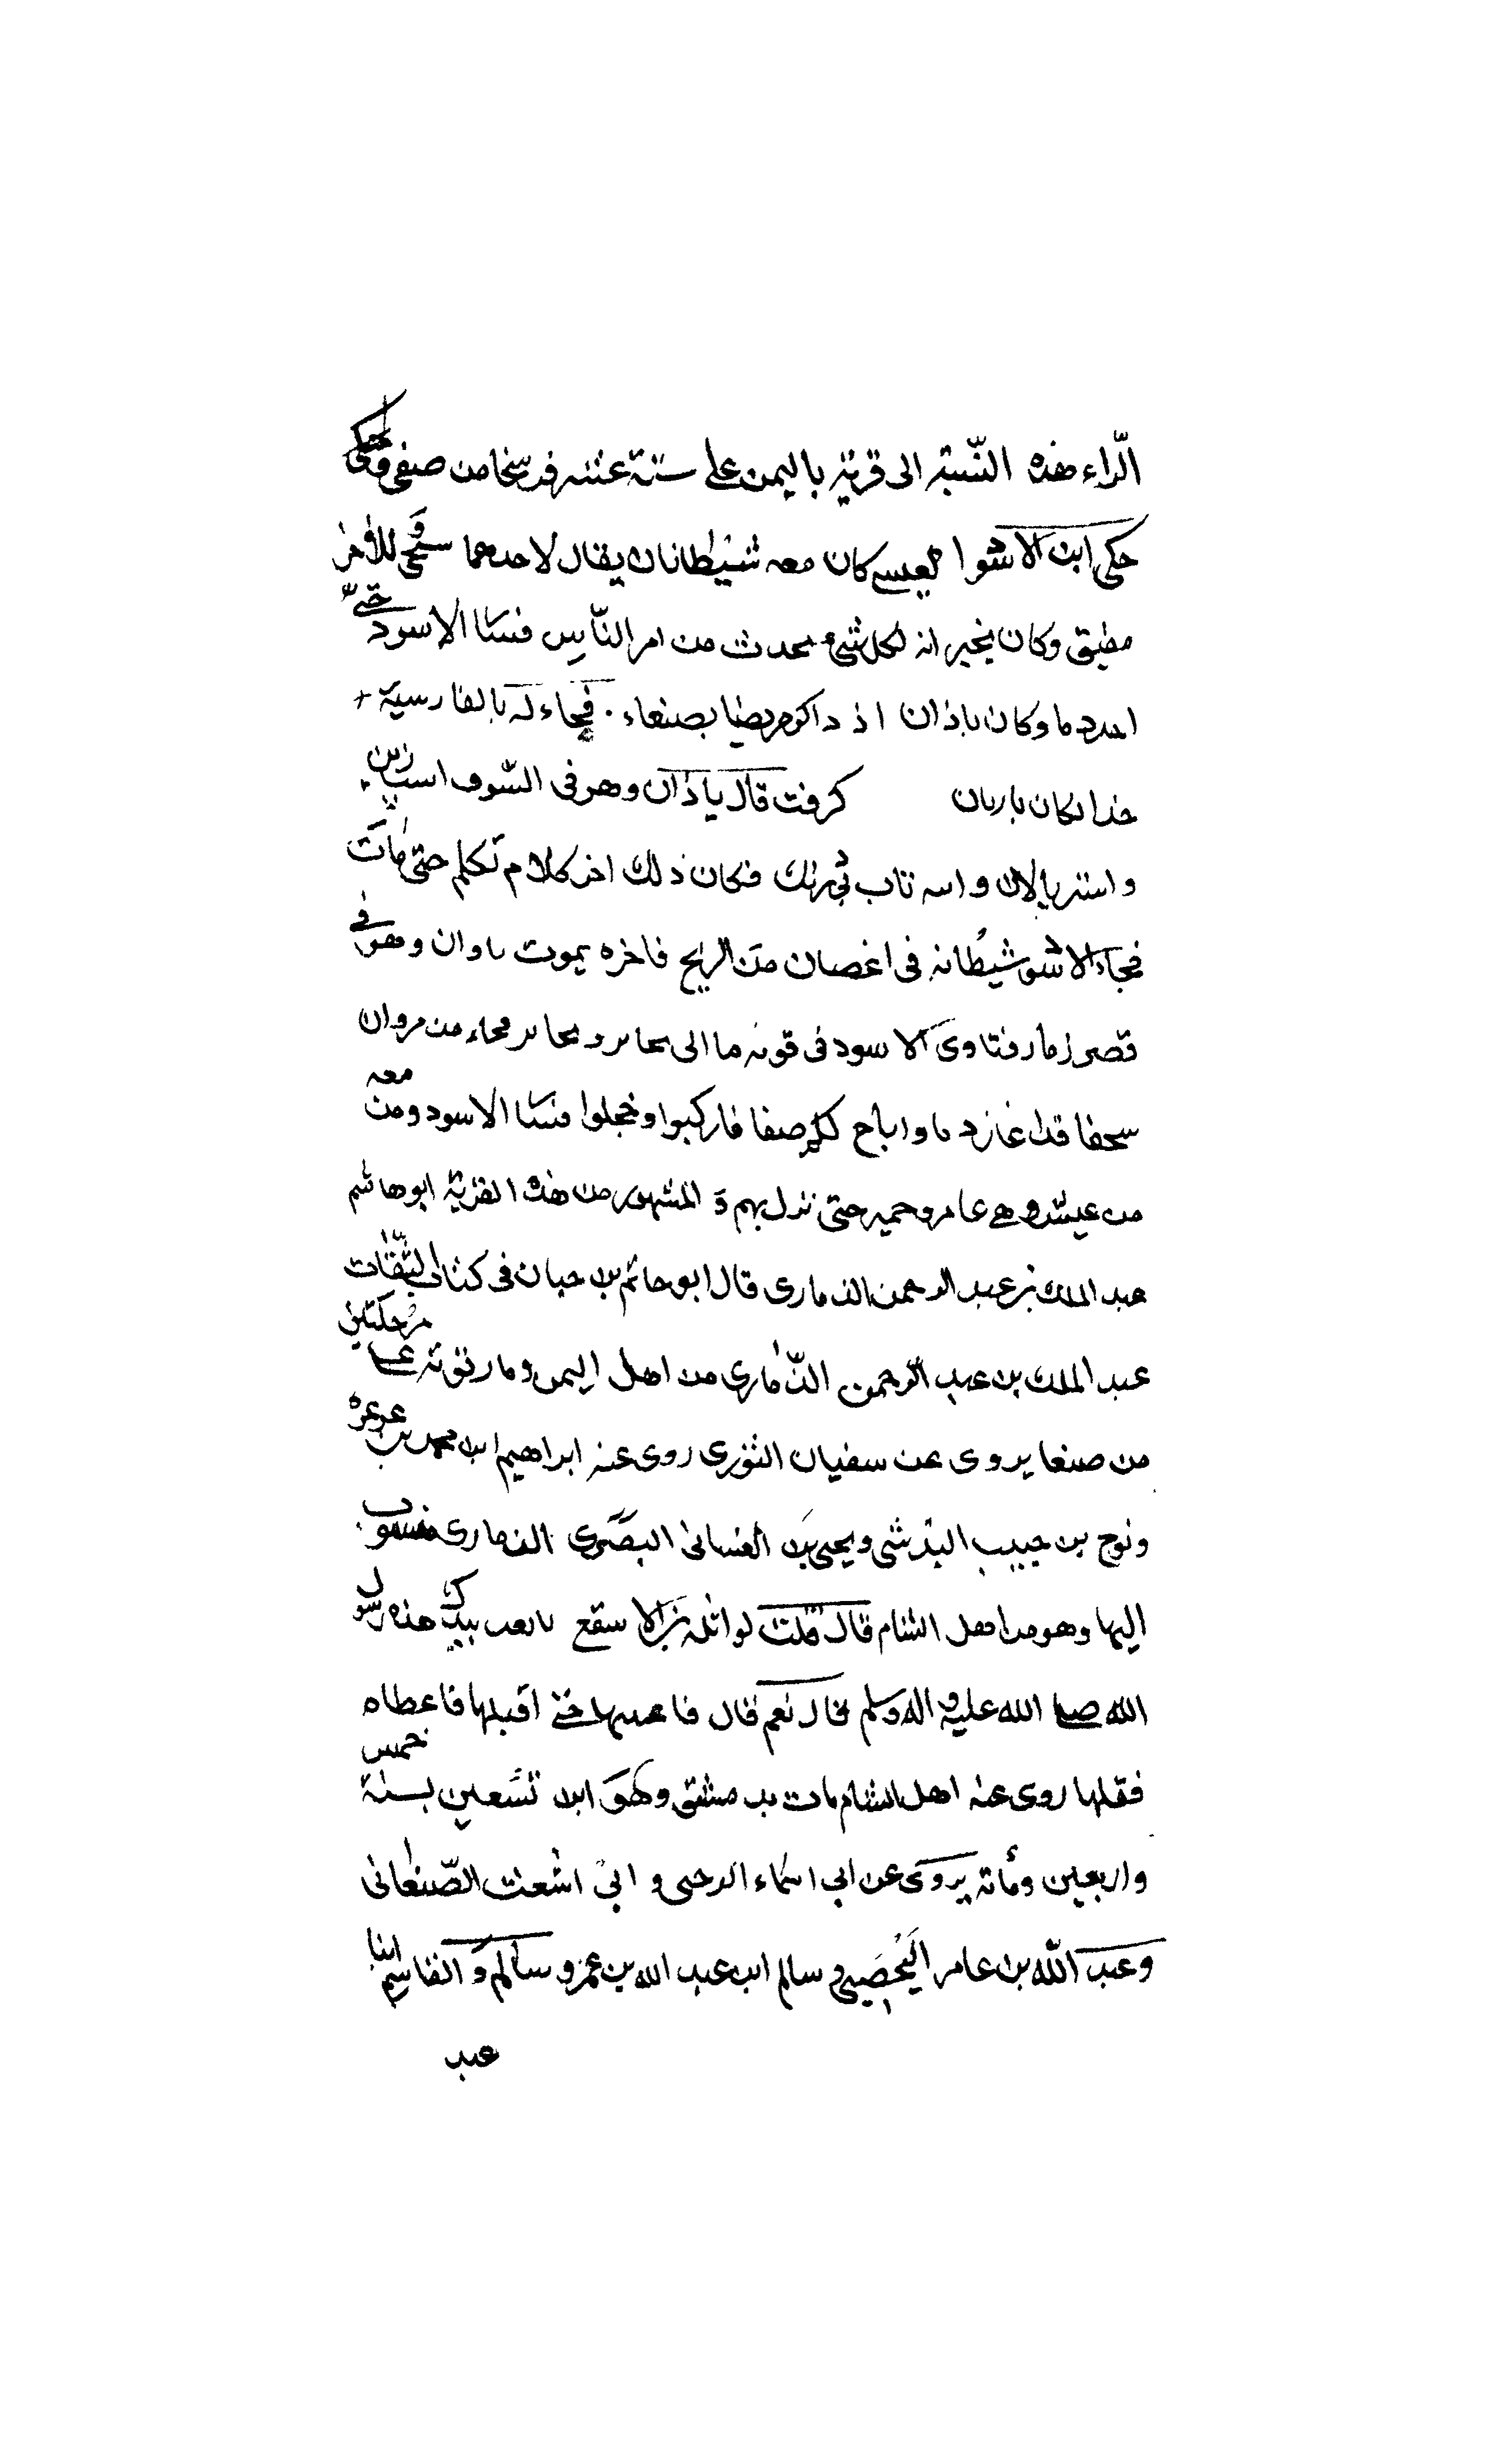 الرّاء هذه النّسبة الى قرية باليمن على ستة عشر فرسخا من صنعى وحكى
حكى ابن الاسود العيسى كان معه شيطانان يقال لاحدهما سحق وللاخر
مقيق وكان يخبر انه لكل شئ يحدث من امر النّاس فسار الاسود حتى
اخذ ذمار وكان باذان اذ ذاك مريضا بصنعاء فجاءه له بالفارسية
خدا يكان باريان كرفت قال ياذان وهو فى السّوق اسب زين
واستر پالان واسه تاب بى رنك فكان ذلك اخر كلام تكلم حتى مات
فجاء الاسود شيطانه فى اغصان من الريح فاخره بموت باوان وهو فى
قصر زمار فتاوى الاسود فى قومه ما الى يحابر ويحابر فجاء من مروان
سحقا قد اغازد ما واباح لكم صنعا فاركبوا وعجلوا فسار الاسود ومن معه
من عبس وهى عامر وحمير حتى نزل بهم و المشهور من هذه القرية ابو هاشم
عبد الملك بن عبد الرحمن الذمارى قال ابو حاتم بن حبان فى كتاب الثّقات
عبد الملك بن عبد الرّحمن الذّمارى من اهل اليمن وذمار قرية على مرحلتين
من صنعا يروى عن سفيان الثورى روى عنه ابراهيم ابن محمد بن عرعرة
ونوح بن حبيب البذشى ويحيى بن الغسانى البصرى الذمارى منسوب
اليها وهو من اهل الشام قال قلت لواثله بن الاسقع بايعت بيدك هذه رسول
الله صلى الله عليه واله وسلم قال نعم قال فاعطنيها حتى اقبلها فاعطاه
فقبلها روى عنه اهل الشام مات بدمشق وهو ابن تسعين بسنة خمس
واربعين ومأته يروى عن ابى اسماء الرحبى و ابى اشعث الصّنعانى
وعبد اللّه بن عامر اليحصبى وسالم ابن عبد الله بن عمر و سالم والقاسم ابنا
عبد